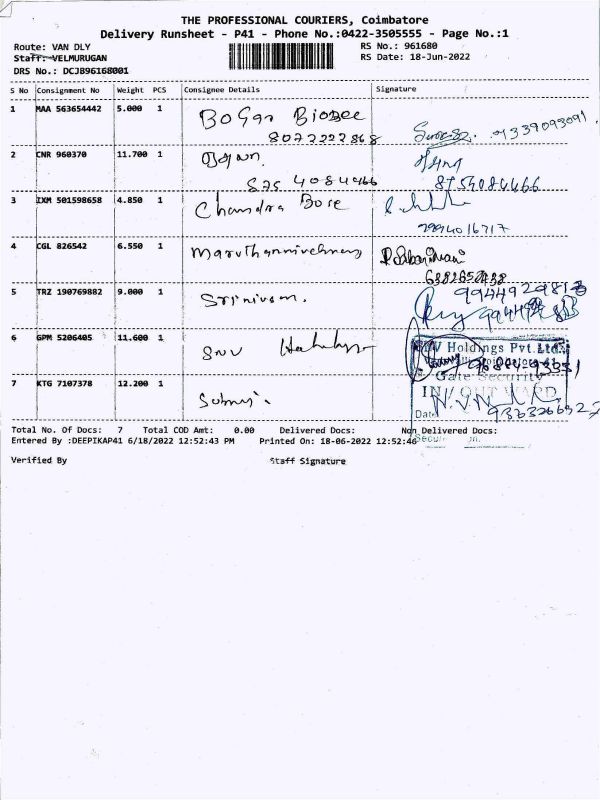 THE PROFESSIONAL COURIERS, Coimbatore
Delivery Runsheet - P41 - Phone No.:0422-3505555 - Page No.:1
Route: VAN DLY RS No.: 961680
Staff: VELMURUGAN RS Date: 18-Jun-2022
DRS No.: DCJB96168001
S No Consignment No Weight PCS Consignee Details Signature
1 MAA 563654442 5.000 1
8072222868 9339093091
2 CNR 960370 11.700 1
875 4084466 8754084466
3 IXM 501598658 4.850 1 Chandra Bose
7994016717
4 CGL 826542 6.550 1
6382658738
5 TRZ 190769882 9.000 1 Srinivasan.
9944929813
6 GPM 5206405 11.600 1 SNV
Holdings Pvt. Ltd.
Gate Security
7 KTG 7107378 12.200 1
IN / OUT WARD
Date
Total No. Of Docs: 7 Total COD Amt: 0.00 Delivered Docs: Non Delivered Docs:
Entered By :DEEPIKAP41 6/18/2022 12:52:43 PM Printed On: 18-06-2022 12:52:46
Verified By Staff Signature